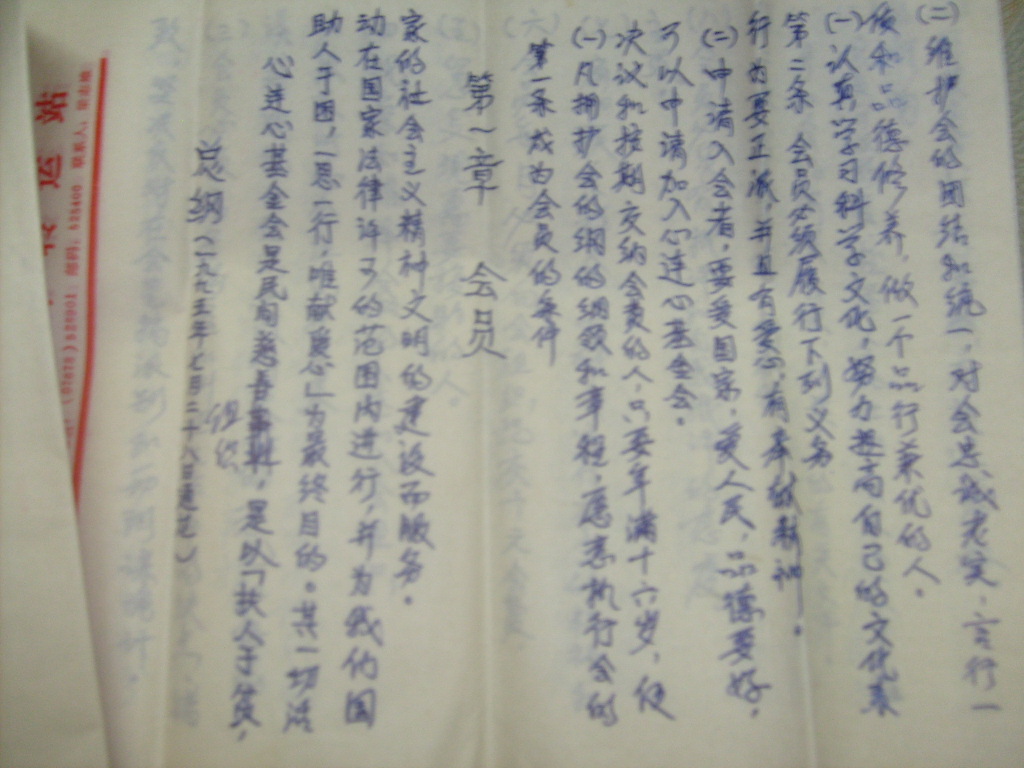 运站
324001 邮码：525400 联系人：
总纲（一九九五年七月二十八日通过）
心连心基金会是民间慈善组织，是以「扶人于贫，
助人于困，一恩一行，唯献爱心」为最终目的。其一切活
动在国家法律许可的范围内进行，并为我们国
家的社会主义精神文明的建设而服务。
第一章 会员
第一条 成为会员的条件
（一）凡拥护会的纲的纲领和章程，愿意执行会的
决议和按期交纳会费的人，只要年满十六岁，便
可以申请加入心连心基金会。
（二）申请入会者，要爱国家，爱人民，品德要好，
行为要正派，并且有爱心，有奉献精神。
第二条 会员必须履行下列义务
（一）认真学习科学文化，努力提高自己的文化素
质和品德修养，做一个品行兼优的人。
（二）维护会的团结和统一，对会忠诚老实，言行一